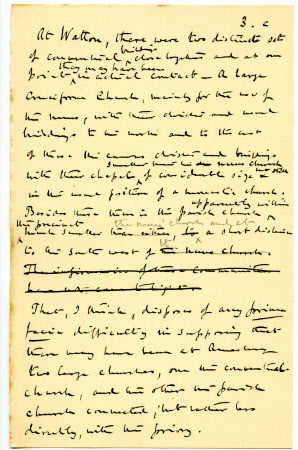 3. c
At Watton, there were two distinct sets
of conventual buildings close together and at one
point they may have been in actual contact — A large
Cruciform Church, mainly for the use of
the nuns, with their cloister and usual
buildings to the north and to the east
of these the canons cloister and buildings
with their chapel, smaller than the nuns church but still of considerable size
in the usual position of a monastic church.
Besides these there is the parish church apparently within
the precinct much smaller than either, the nuns church and at a short distance
to the south west of it the nuns church.
The infirmaries of these communities
That, I think, disposes of any prima
facie difficulty in supposing that
there may have been at Amesbury
two large churches, one the conventual
church, and the other the parish
church connected, but rather less
directly, with the priory.